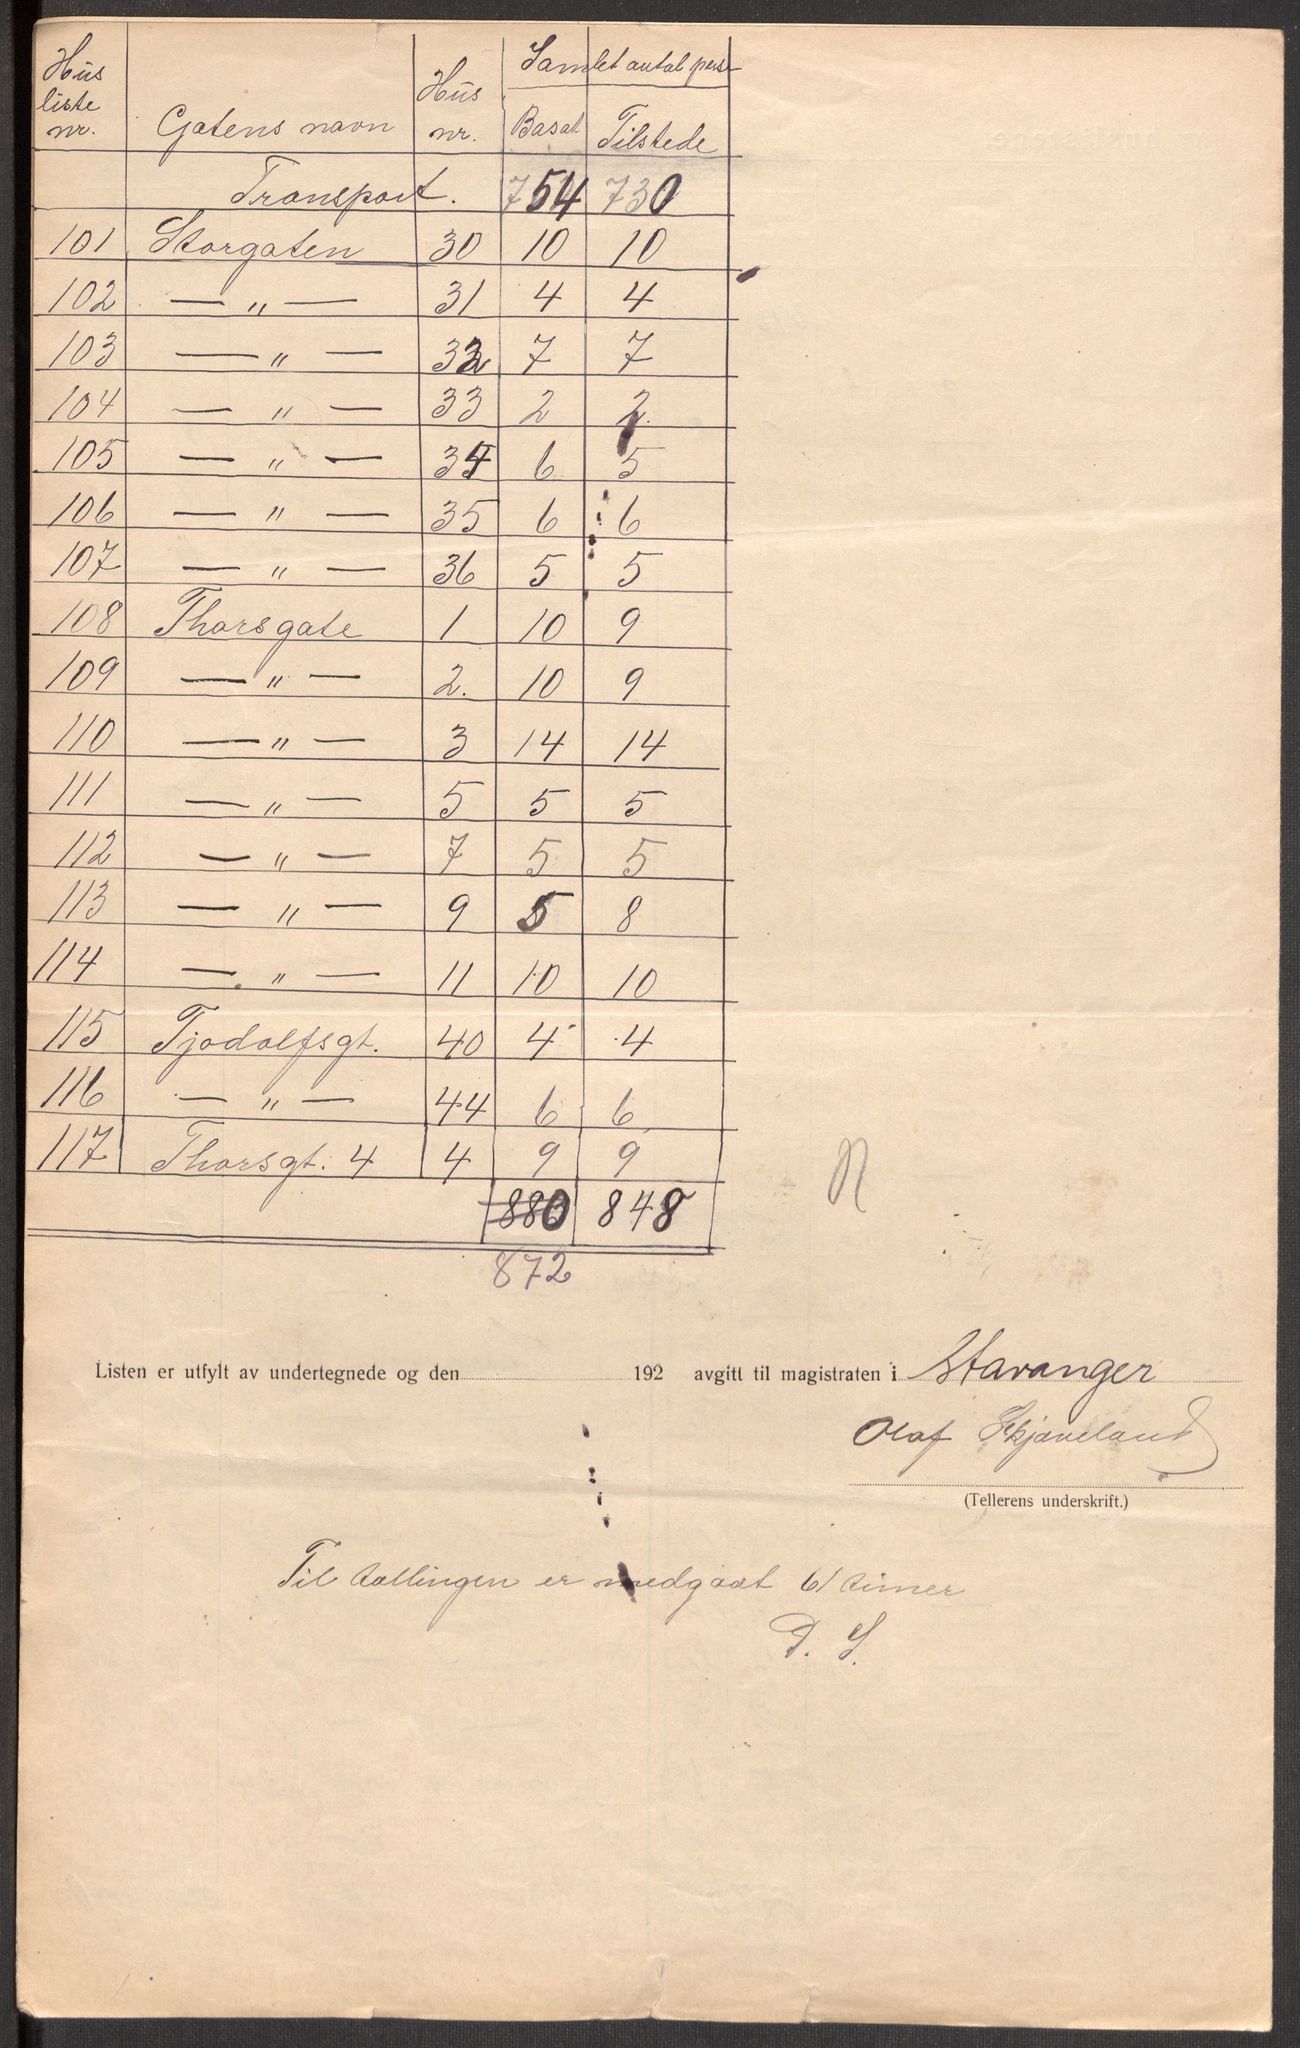 Hus liste nr. Gatens navn Hus nr. Samlet antal pers
Bosat Tilstede
Transport. 754 730
101 Storgaten 30 10 10
102 — „ — 31 4 4
103 — „ — 32 7 7
104 — „ — 33 2 2
105 — „ — 34 6 5
106 — „ — 35 6 6
107 — „ — 36 5 5
108 Thorsgate 1 10 9
109 — „ — 2. 10 9
110 — „ — 3 14 14
111 — „ — 5 5 5
112 — „ — 7 5 5
113 — „ — 9 5 8
114 — „ — 11 10 10
115 Tjodolfsgt. 40 4 4
116 — „ — 44 6 6
117 Thorsgt. 4 4 9 9
880 848
872
Listen er utfylt av undertegnede og den 192 avgitt til magistraten i Stavanger
Olaf Skjæveland
(Tellerens underskrift.)
Til tællingen er medgaat 61 timer